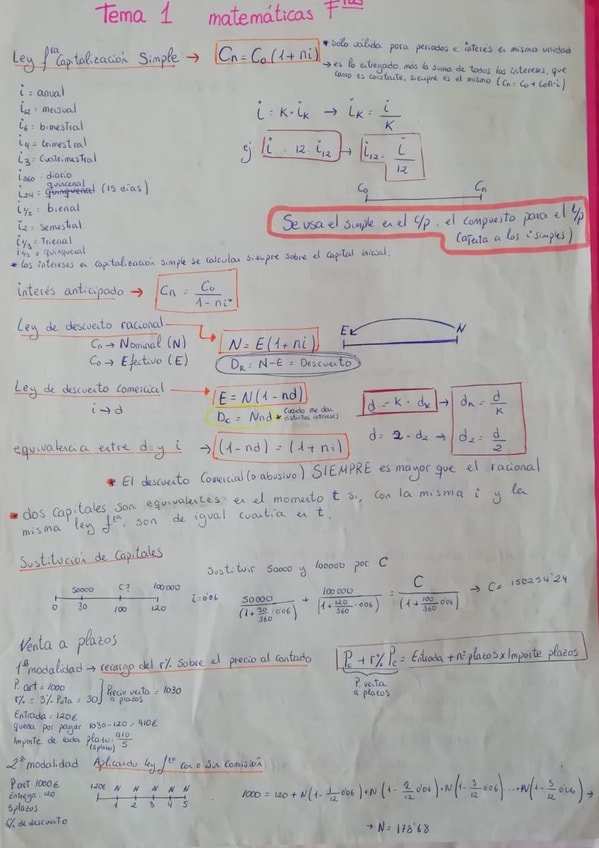 Tema 1 matemáticas Fras
Ley fra Capitalización Simple → Cn = Co (1 + ni)
* solo válida para periodos e interés en misma unidad
→ es lo entregado más la suma de todos los intereses, que como es constante, siempre es el mismo (Cn = Co + Co·n·i)
i = anual
i12 = mensual
i6 = bimestral
i4 = trimestral
i3 = cuatrimestral
i360 = diario
i24 = quincenal (15 días)
i1/2 = bienal
i2 = semestral
i1/3 = trienal
i1/5 = quinquenal
i = k · ik → ik = i/k
ej i = 12 · i12 → i12 = i/12
Co Cn
Se usa el simple en el c/p, el compuesto para el l/p
(afecta a los i simples)
* Los intereses en capitalización simple se calculan siempre sobre el capital inicial.
interés anticipado → Cn = Co / 1 - ni*
Ley de descuento racional → N = E (1 + ni)
Cn → Nominal (N)
Co → Efectivo (E)
DR = N - E = Descuento
E N
Ley de descuento comercial → E = N (1 - nd)
i → d
Dc = Nnd * Cuando me dan distintos intereses
d = k · dk → dk = d/k
d = 2 · d2 → d2 = d/2
equivalencia entre d y i → (1 - nd) = (1 + ni)
* El descuento Comercial (o abusivo) SIEMPRE es mayor que el racional
* dos capitales son equivalentes en el momento t si, con la misma i y la
misma ley fra, son de igual cuantía en t.
Sustitución de Capitales
Sustituir 50000 y 100000 por C
50000 C? 100000
0 30 100 120
i = 0'06
50000 / (1 + 30/360 · 0'06) + 100000 / (1 + 120/360 · 0'06) = C / (1 + 100/360 0'06) → C = 150254'24
Venta a plazos
1ª modalidad → recargo del r% sobre el precio al contado
Pc + r% Pc = Entrada + nº plazos x Importe plazos
P. venta a plazos
P. art = 1000
r% = 3% Pvta = 30
Precio venta a plazos = 1030
Entrada = 120€
queda por pagar 1030 - 120 = 910€
Importe de cada plazo: 910/5
(5 plazos)
2ª modalidad Aplicando ley fra con o sin comisión
P art 1000€
Entrega: 120
5 plazos
6% de descuento
120€ N N N N N
1 2 3 4 5
1000 = 120 + N(1 - 1/12 0'06) + N(1 - 2/12 0'06) + N(1 - 3/12 0'06) ... + N(1 - 5/12 0'06) →
→ N = 178'68